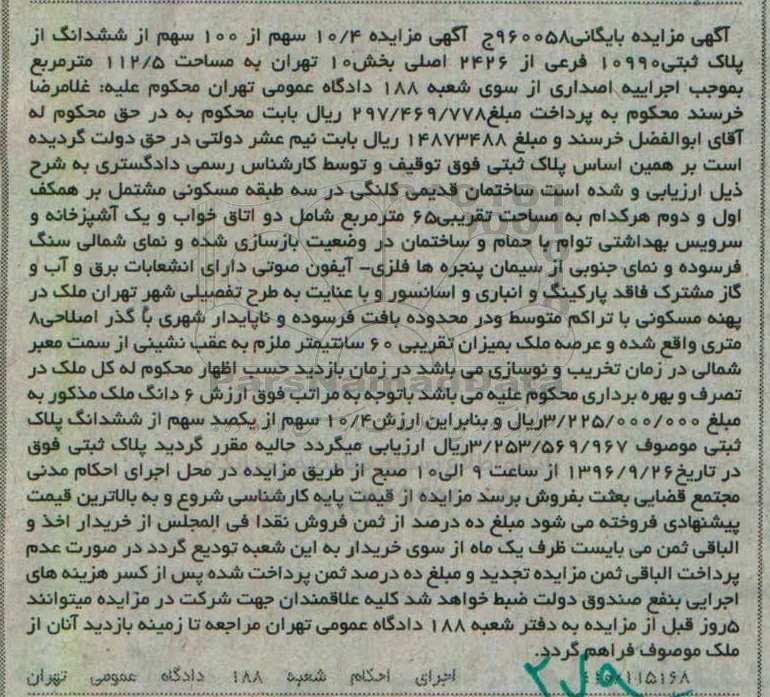 آگهی مزایده بایگانی۹۶۰۰۵۸ج آگهی مزایده ۱۰/۴ سهم از ۱۰۰ سهم از ششدانگ از
پلاک ثبتی۱۰۹۹۰ فرعی از ۲۴۲۶ اصلی بخش۱۰ تهران به مساحت ۱۱۲/۵ مترمربع
بموجب اجراییه اصداری از سوی شعبه ۱۸۸ دادگاه عمومی تهران محکوم علیه: غلامرضا
خرسند محکوم به پرداخت مبلغ۲۹۷/۴۶۹/۷۷۸ ریال بابت محکوم به در حق محکوم له
آقای ابوالفضل خرسند و مبلغ ۱۴۸۷۳۴۸۸ ریال بابت نیم عشر دولتی در حق دولت گردیده
است بر همین اساس پلاک ثبتی فوق توقیف و توسط کارشناس رسمی دادگستری به شرح
ذیل ارزیابی و شده است ساختمان قدیمی کلنگی در سه طبقه مسکونی مشتمل بر همکف
اول و دوم هرکدام به مساحت تقریبی۶۵ مترمربع شامل دو اتاق خواب و یک آشپزخانه و
سرویس بهداشتی توام با حمام و ساختمان در وضعیت بازسازی شده و نمای شمالی سنگ
فرسوده و نمای جنوبی از سیمان پنجره ها فلزی- آیفون صوتی دارای انشعابات برق و آب و
گاز مشترک فاقد پارکینگ و انباری و اسانسور و با عنایت به طرح تفصیلی شهر تهران ملک در
پهنه مسکونی با تراکم متوسط ودر محدوده بافت فرسوده و ناپایدار شهری با گذر اصلاحی۸
متری واقع شده و عرصه ملک بمیزان تقریبی ۶۰ سانتیمتر ملزم به عقب نشینی از سمت معبر
شمالی در زمان تخریب و نوسازی می باشد در زمان بازدید حسب اظهار محکوم له کل ملک در
تصرف و بهره برداری محکوم علیه می باشد باتوجه به مراتب فوق ارزش ۶ دانگ ملک مذکور به
مبلغ ۳/۲۲۵/۰۰۰/۰۰۰ریال و بنابراین ارزش۱۰/۴ سهم از یکصد سهم از ششدانگ پلاک
ثبتی موصوف ۳/۲۵۳/۵۶۹/۹۶۷ریال ارزیابی میگردد حالیه مقرر گردید پلاک ثبتی فوق
در تاریخ۱۳۹۶/۹/۲۶ از ساعت ۹ الی۱۰ صبح از طریق مزایده در محل اجرای احکام مدنی
مجتمع قضایی بعثت بفروش برسد مزایده از قیمت پایه کارشناسی شروع و به بالاترین قیمت
پیشنهادی فروخته می شود مبلغ ده درصد از ثمن فروش نقدا فی المجلس از خریدار اخذ و
الباقی ثمن می بایست ظرف یک ماه از سوی خریدار به این شعبه تودیع گردد در صورت عدم
پرداخت الباقی ثمن مزایده تجدید و مبلغ ده درصد ثمن پرداخت شده پس از کسر هزینه های
اجرایی بنفع صندوق دولت ضبط خواهد شد کلیه علاقمندان جهت شرکت در مزایده میتوانند
۵روز قبل از مزایده به دفتر شعبه ۱۸۸ دادگاه عمومی تهران مراجعه تا زمینه بازدید آنان از
ملک موصوف فراهم گردد.
اجرای احکام شعبه ۱۸۸ دادگاه عمومی تهران
ParsNamadData